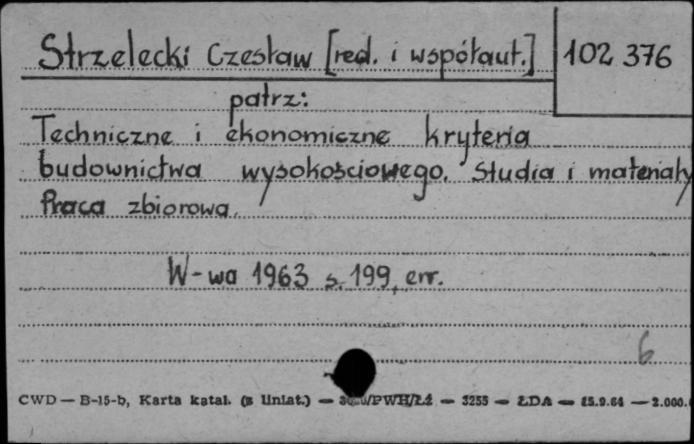 Strzelecki Czesław [red. i współaut.] 102 376
patrz:
Techniczne i ekonomiczne kryteria
budownictwa wysokościowego. Studia i materiały
Praca zbiorowa.
W-wa 1963 s. 199, err.
6
CWD — B-15-b, Karta katal. (z liniat.) — /PWH/ŁŻ — 3255 — ŁDA — 25.9.64 — 2.000.